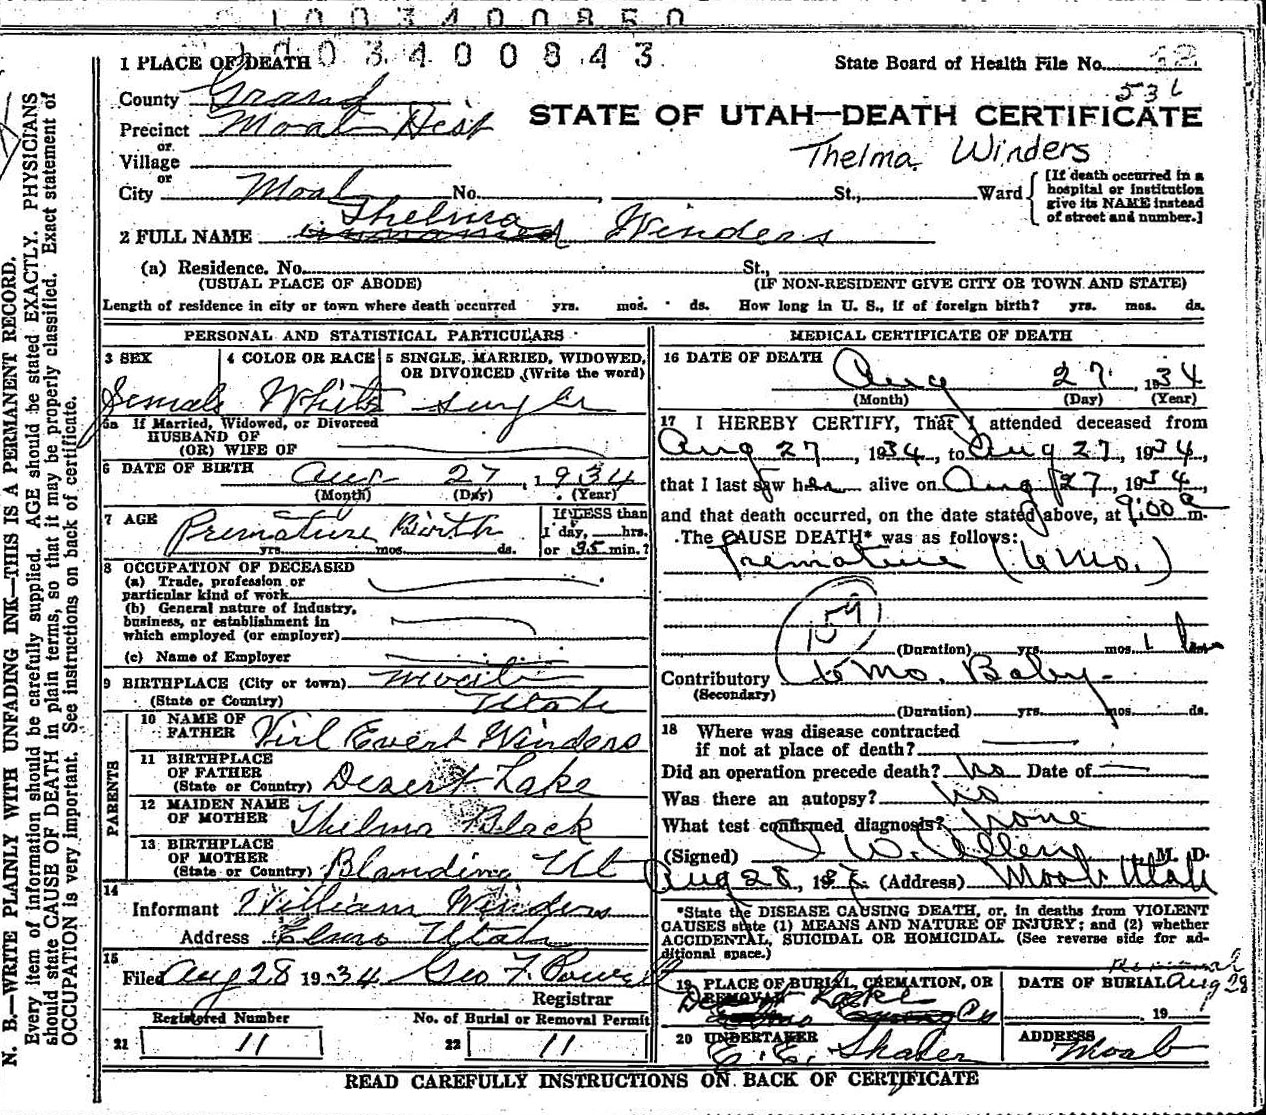 1003400850
1003400843
1 PLACE OF DEATH
State Board of Health File No. 12
County Grand
536
Precinct Moab Dist
STATE OF UTAH—DEATH CERTIFICATE
or
Village
Thelma Winders
or
City Moab No. , St., Ward
[If death occurred in a hospital or institution give its NAME instead of street and number.]
Thelma
2 FULL NAME unnamed Winders
(a) Residence. No. St.,
(USUAL PLACE OF ABODE) (IF NON-RESIDENT GIVE CITY OR TOWN AND STATE)
Length of residence in city or town where death occurred yrs. mos. ds. How long in U. S., if of foreign birth? yrs. mos. ds.
PERSONAL AND STATISTICAL PARTICULARS
3 SEX 4 COLOR OR RACE 5 SINGLE, MARRIED, WIDOWED,
OR DIVORCED (Write the word)
Female White single
5a If Married, Widowed, or Divorced
HUSBAND OF
(OR) WIFE OF
6 DATE OF BIRTH Aug 27, 1934
(Month) (Day) (Year)
7 AGE Premature Birth
yrs. mos. ds.
If LESS than
1 day, hrs.
or 35 min.?
8 OCCUPATION OF DECEASED
(a) Trade, profession or
particular kind of work
(b) General nature of industry,
business, or establishment in
which employed (or employer)
(c) Name of Employer
9 BIRTHPLACE (City or town) Moab
(State or Country) Utah
PARENTS
10 NAME OF
FATHER Virl Evert Winders
11 BIRTHPLACE
OF FATHER
(State or Country) Desert Lake
12 MAIDEN NAME
OF MOTHER Thelma Black
13 BIRTHPLACE
OF MOTHER
(State or Country) Blanding Ut
14
Informant William Winders
Address Elmo Utah
15
Filed Aug 28 1934 Geo F. Powell
Registrar
Registered Number No. of Burial or Removal Permit
21 11 22 11
MEDICAL CERTIFICATE OF DEATH
16 DATE OF DEATH
Aug 27, 1934
(Month) (Day) (Year)
17 I HEREBY CERTIFY, That I attended deceased from
Aug 27, 1934, to Aug 27, 1934,
that I last saw her alive on Aug 27, 1934,
and that death occurred, on the date stated above, at 9:00 a m.
The CAUSE DEATH* was as follows:
Premature (6 Mo.)
159
(Duration) yrs. mos. 1 hour
Contributory 6 Mo. Baby
(Secondary)
(Duration) yrs. mos. ds.
18 Where was disease contracted
if not at place of death?
Did an operation precede death? No Date of
Was there an autopsy? No
What test confirmed diagnosis? None
(Signed) I. W. Allen, M. D.
Aug 28, 193 (Address) Moab Utah
*State the DISEASE CAUSING DEATH, or, in deaths from VIOLENT
CAUSES state (1) MEANS AND NATURE OF INJURY; and (2) whether
ACCIDENTAL, SUICIDAL OR HOMICIDAL. (See reverse side for ad-
ditional space.)
19 PLACE OF BURIAL, CREMATION, OR
REMOVAL Desert Lake
Elmo Emery Co
Removal
DATE OF BURIAL Aug 28
, 19
20 UNDERTAKER
ADDRESS
Moab
READ CAREFULLY INSTRUCTIONS ON BACK OF CERTIFICATE
N. B.—WRITE PLAINLY WITH UNFADING INK—THIS IS A PERMANENT RECORD.
Every item of information should be carefully supplied. AGE should be stated EXACTLY. PHYSICIANS
should state CAUSE OF DEATH in plain terms, so that it may be properly classified. Exact statement of
OCCUPATION is very important. See instructions on back of certificate.